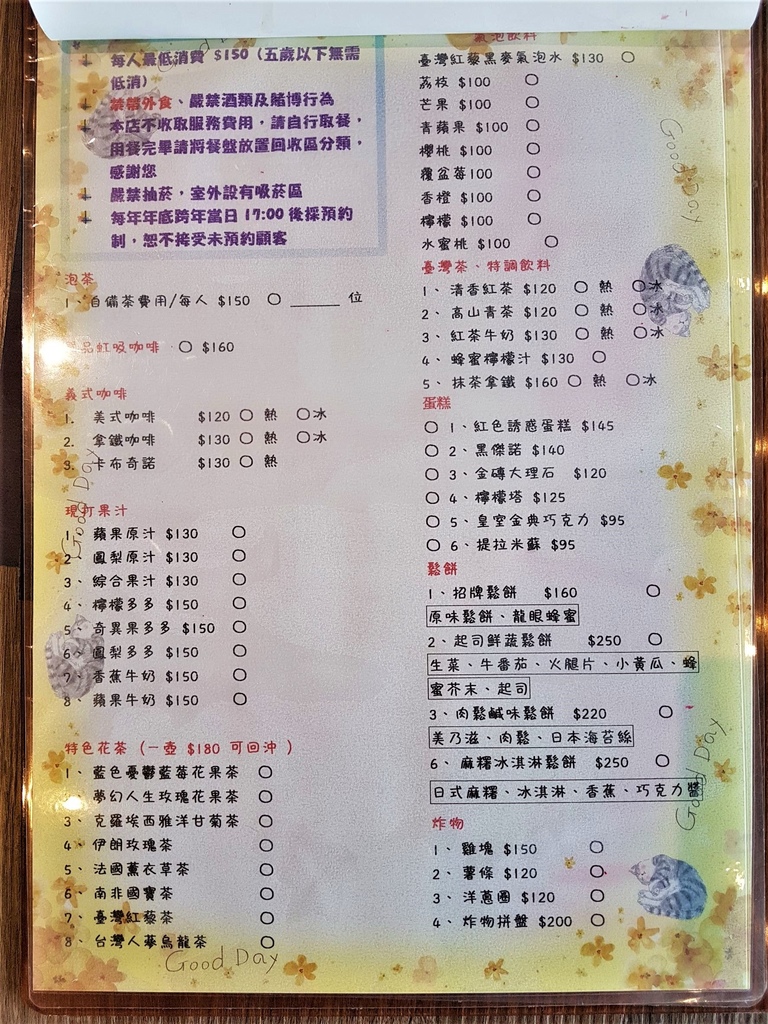 每人最低消費 $150（五歲以下無需
低消）
禁帶外食、嚴禁酒類及賭博行為
本店不收取服務費用，請自行取餐，
用餐完畢請將餐盤放置回收區分類，
感謝您
嚴禁抽菸，室外設有吸菸區
每年年底跨年當日 17:00 後採預約
制，恕不接受未預約顧客
泡茶
1、自備茶費用/每人 $150 ○ ______ 位
品虹吸咖啡 ○ $160
義式咖啡
1. 美式咖啡 $120 ○ 熱 ○冰
2. 拿鐵咖啡 $130 ○ 熱 ○冰
3. 卡布奇諾 $130 ○ 熱
現打果汁
1、蘋果原汁 $130 ○
2、鳳梨原汁 $130 ○
3、綜合果汁 $130 ○
4、檸檬多多 $150 ○
5、奇異果多多 $150 ○
6、鳳梨多多 $150 ○
7、香蕉牛奶 $150 ○
8、蘋果牛奶 $150 ○
特色花茶（一壺 $180 可回沖 ）
1、藍色憂鬱藍莓花果茶 ○
2、夢幻人生玫瑰花果茶 ○
3、克羅埃西雅洋甘菊茶 ○
4、伊朗玫瑰茶 ○
5、法國薰衣草茶 ○
6、南非國寶茶 ○
7、臺灣紅藜茶 ○
8、台灣人蔘烏龍茶 ○
Good Day
Good Day
氣泡飲料
臺灣紅藜黑麥氣泡水 $130 ○
荔枝 $100 ○
芒果 $100 ○
青蘋果 $100 ○
櫻桃 $100 ○
覆盆莓100 ○
香橙 $100 ○
檸檬 $100 ○
水蜜桃 $100 ○
臺灣茶、特調飲料
1、 清香紅茶 $120 ○ 熱 ○冰
2、 高山青茶 $120 ○ 熱 ○冰
3、 紅茶牛奶 $130 ○ 熱 ○冰
4、 蜂蜜檸檬汁 $130 ○
5、 抹茶拿鐵 $160 ○ 熱 ○冰
蛋糕
○ 1、紅色誘惑蛋糕 $145
○ 2、黑傑諾 $140
○ 3、金磚大理石 $120
○ 4、檸檬塔 $125
○ 5、皇室金典巧克力 $95
○ 6、提拉米蘇 $95
鬆餅
1、招牌鬆餅 $160 ○
原味鬆餅、龍眼蜂蜜
2、起司鮮蔬鬆餅 $250 ○
生菜、牛番茄、火腿片、小黃瓜、蜂
蜜芥末、起司
3、肉鬆鹹味鬆餅 $220 ○
美乃滋、肉鬆、日本海苔絲
6、麻糬冰淇淋鬆餅 $250 ○
日式麻糬、冰淇淋、香蕉、巧克力醬
炸物
1、 雞塊 $150 ○
2、 薯條 $120 ○
3、 洋蔥圈 $120 ○
4、 炸物拼盤 $200 ○
Good Day
Good Day